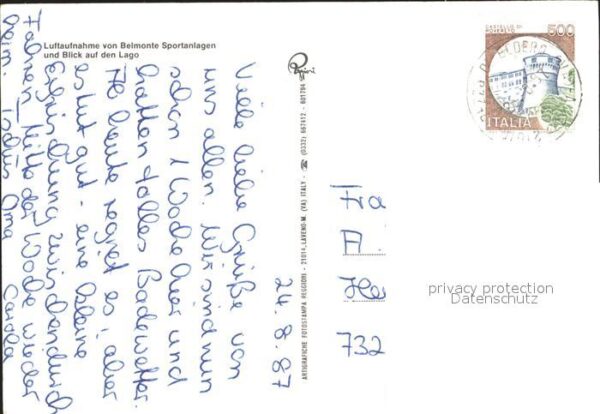 Luftaufnahme von Belmonte Sportanlagen
und Blick auf den Lago
24.8.87
Viele liebe Grüße von
uns allen. Wir sind nun
schon 1 Woche hier und
hatten tolles Badewetter.
heute regnet es, aber
es tut gut - eine kleine
zwischendurch
Fahren Mitte der Woche wieder
heim. Tschüs Oma Carola
ARTIGRAFICHE FOTOSTAMPA REGGIORI - 21014 LAVENO-M. (VA) ITALY - ☎ (0332) 667412 - 601794
CASTELLO DI
ROVERETO
500
ITALIA
Fra
A.
He
732
privacy protection
Datenschutz